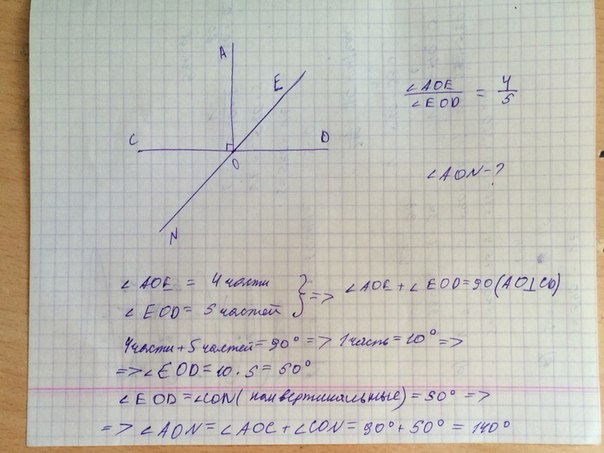 A
E
C
D
O
N
∠AOE / ∠EOD = 4/5
∠AON - ?
∠AOE = 4 части
∠EOD = 5 частей } => ∠AOE + ∠EOD = 90 (AO⊥CD)
4 части + 5 частей = 90° => 1 часть = 10° =>
=> ∠EOD = 10 · 5 = 50°
∠EOD = ∠CON (как вертикальные) = 50° =>
=> ∠AON = ∠AOC + ∠CON = 90° + 50° = 140°